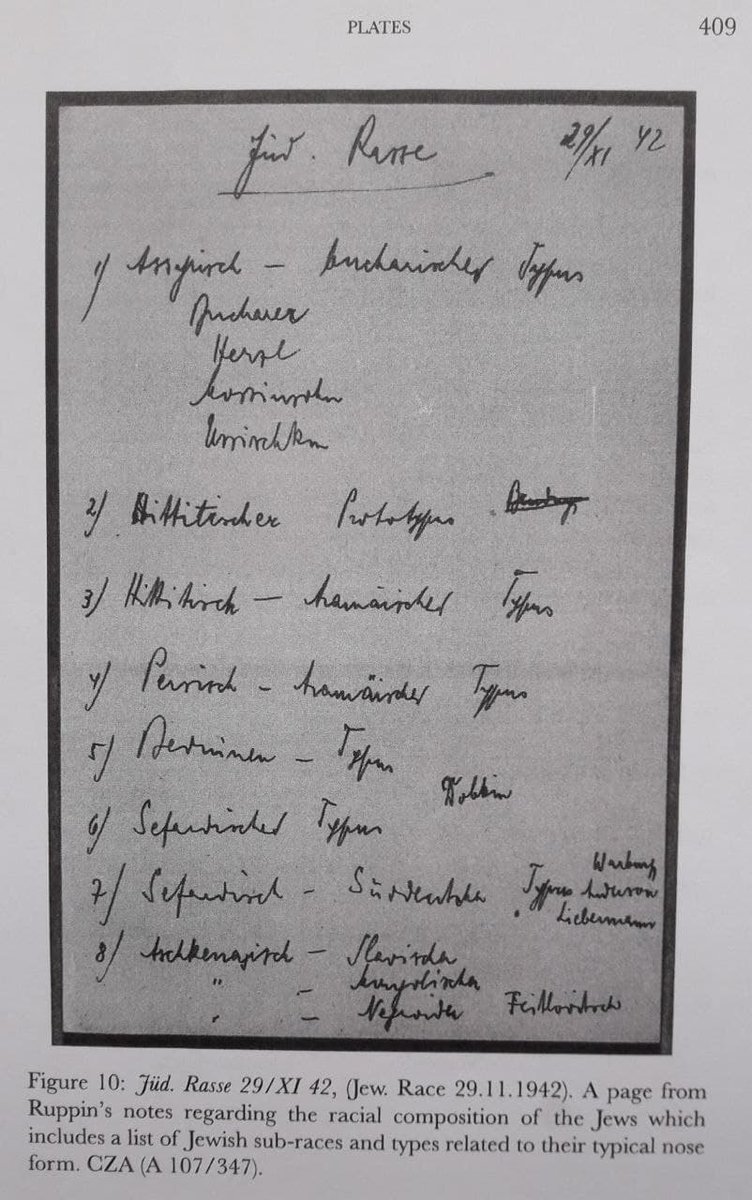 PLATES 409
Jüd. Rasse 29/XI 42
1) Assyrisch – bucharischer Typus
Bucharer
Herzl
Mossinsohn
Ussischkin
2) Hittitischer Prototypus
3) Hittitisch – Aramäischer Typus
4) Persisch – Aramäischer Typus
5) Beduinen – Typus
Dobkin
6) Sefardischer Typus
Warburg
7) Sefardisch – Süddeutscher Typus
Liebermann
8) Aschkenasisch – Slavischer
" – Mongolischer
" – Negroider
Figure 10: Jüd. Rasse 29/XI 42, (Jew. Race 29.11.1942). A page from
Ruppin's notes regarding the racial composition of the Jews which
includes a list of Jewish sub-races and types related to their typical nose
form. CZA (A 107/347).